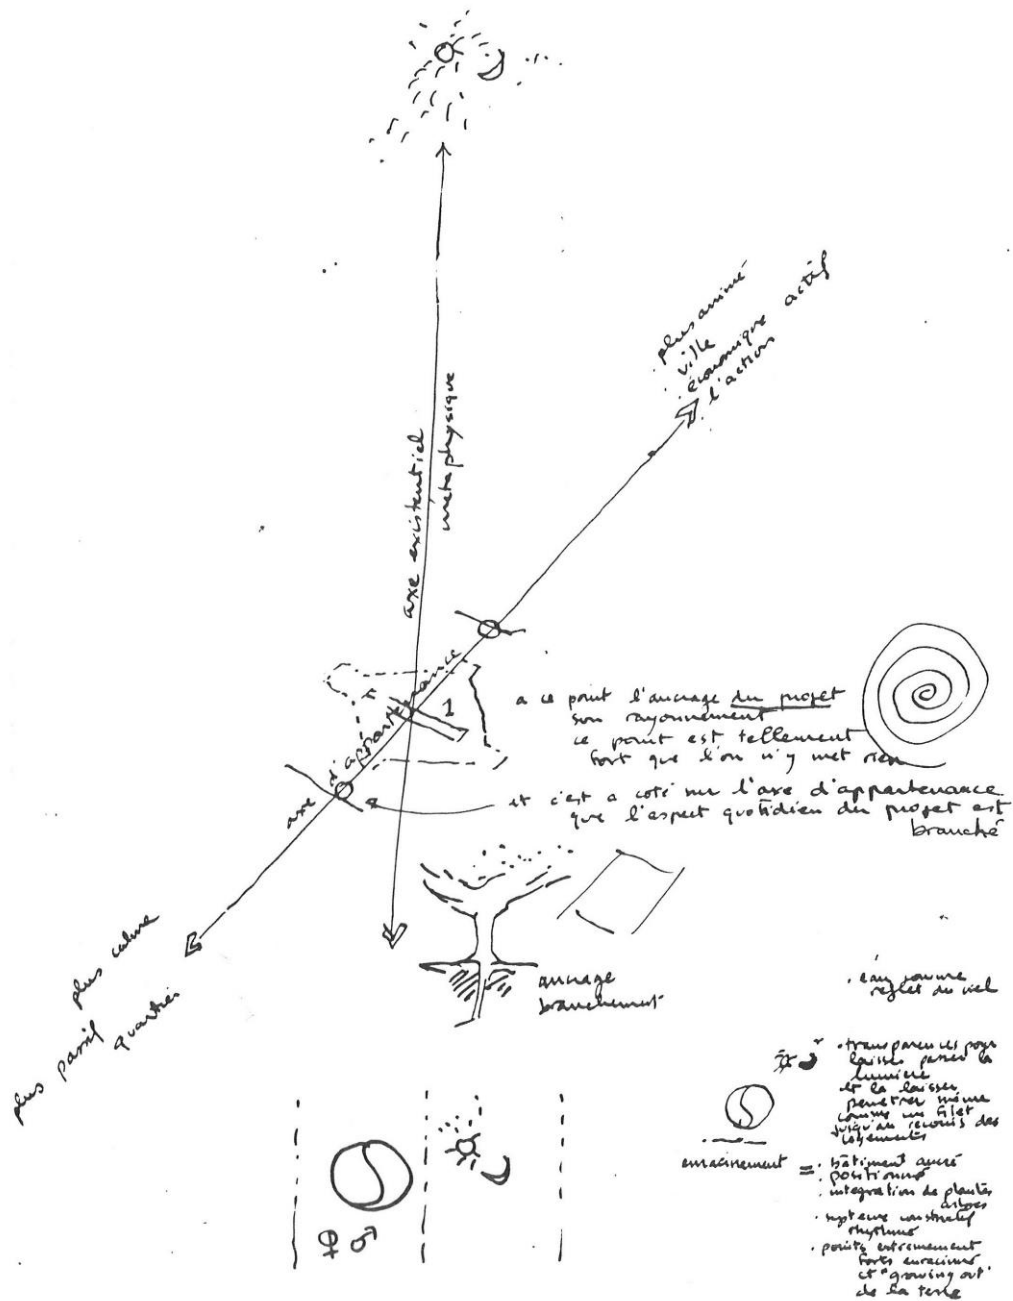 plus animé
ville
économique actif
l'action
axe existentiel
métaphysique
axe d'appartenance
1
a ce point l'ancrage du projet
son rayonnement
ce point est tellement
fort que l'on n'y met rien
et c'est a coté sur l'axe d'appartenance
que l'aspect quotidien du projet est
branché
plus calme
plus passif quartier
ancrage
branchement
. eau comme
reflet du ciel
. transparences pour
laisser passer la
lumière
et la laisser
penetrer même
comme un filet
jusqu'au recoins des
logements
enracinement = . bâtiment ancré
. positionné
. integration de plantes
arbres
. systeme constructif
rhythmé
. points extremement
forts enracinés
et "growing out"
de la terre